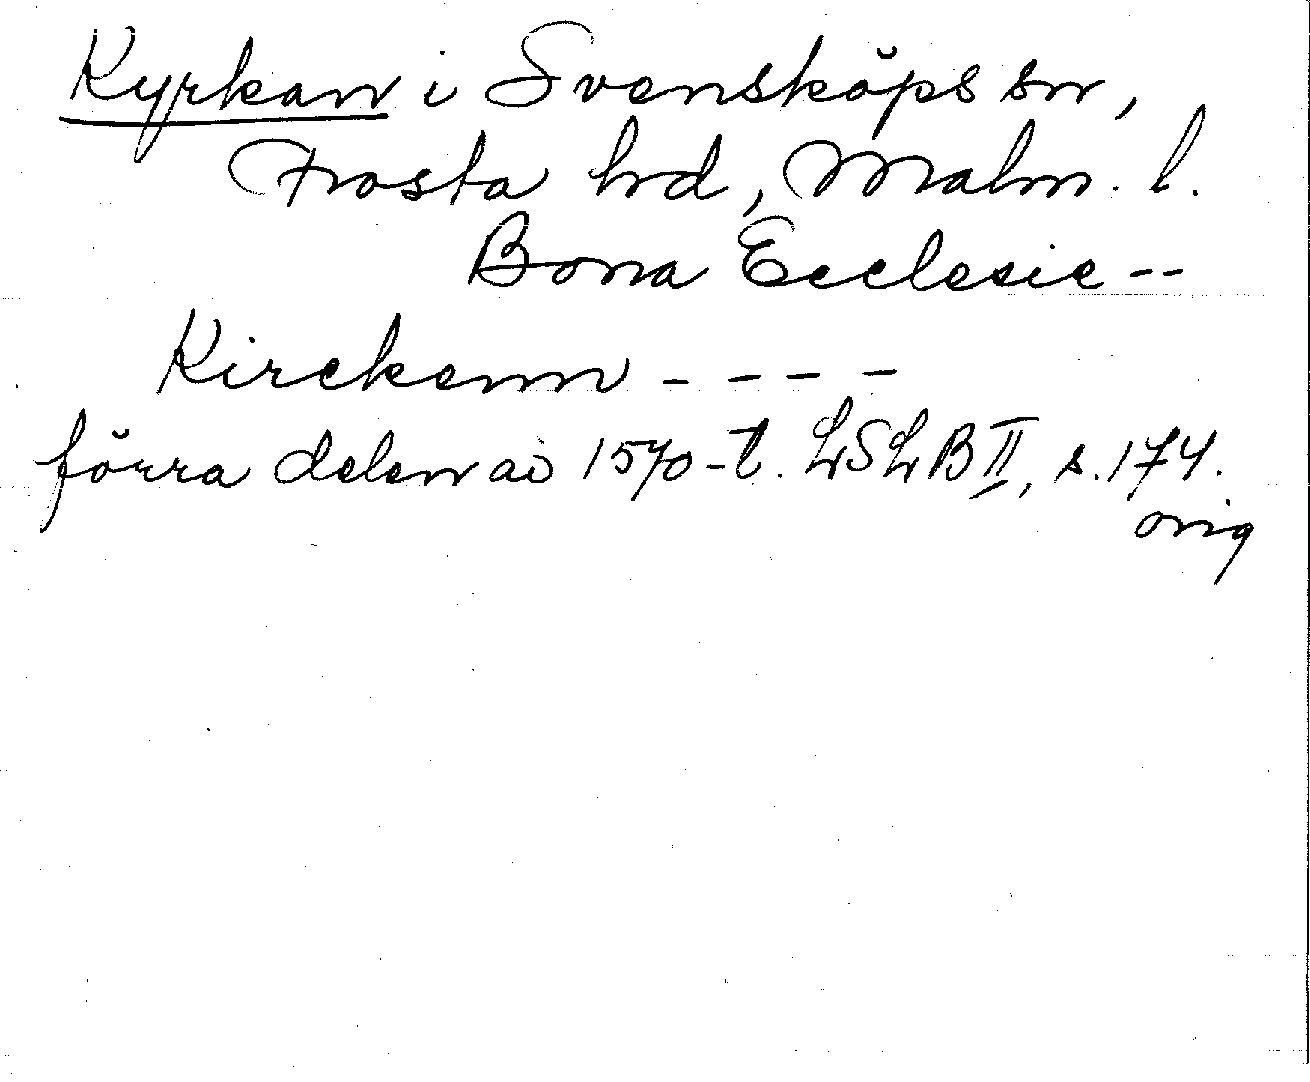 Kyrkan i Svensköps sn,
Frosta hd, Malm. l.
Bona Ecclesie --
Kirckenn - - - -
förra delen av 1570-t. LSLB II, s. 174.
orig